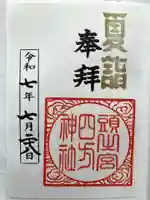 夏詣
奉拝
頭之宮
四方
神社
令和七年七月